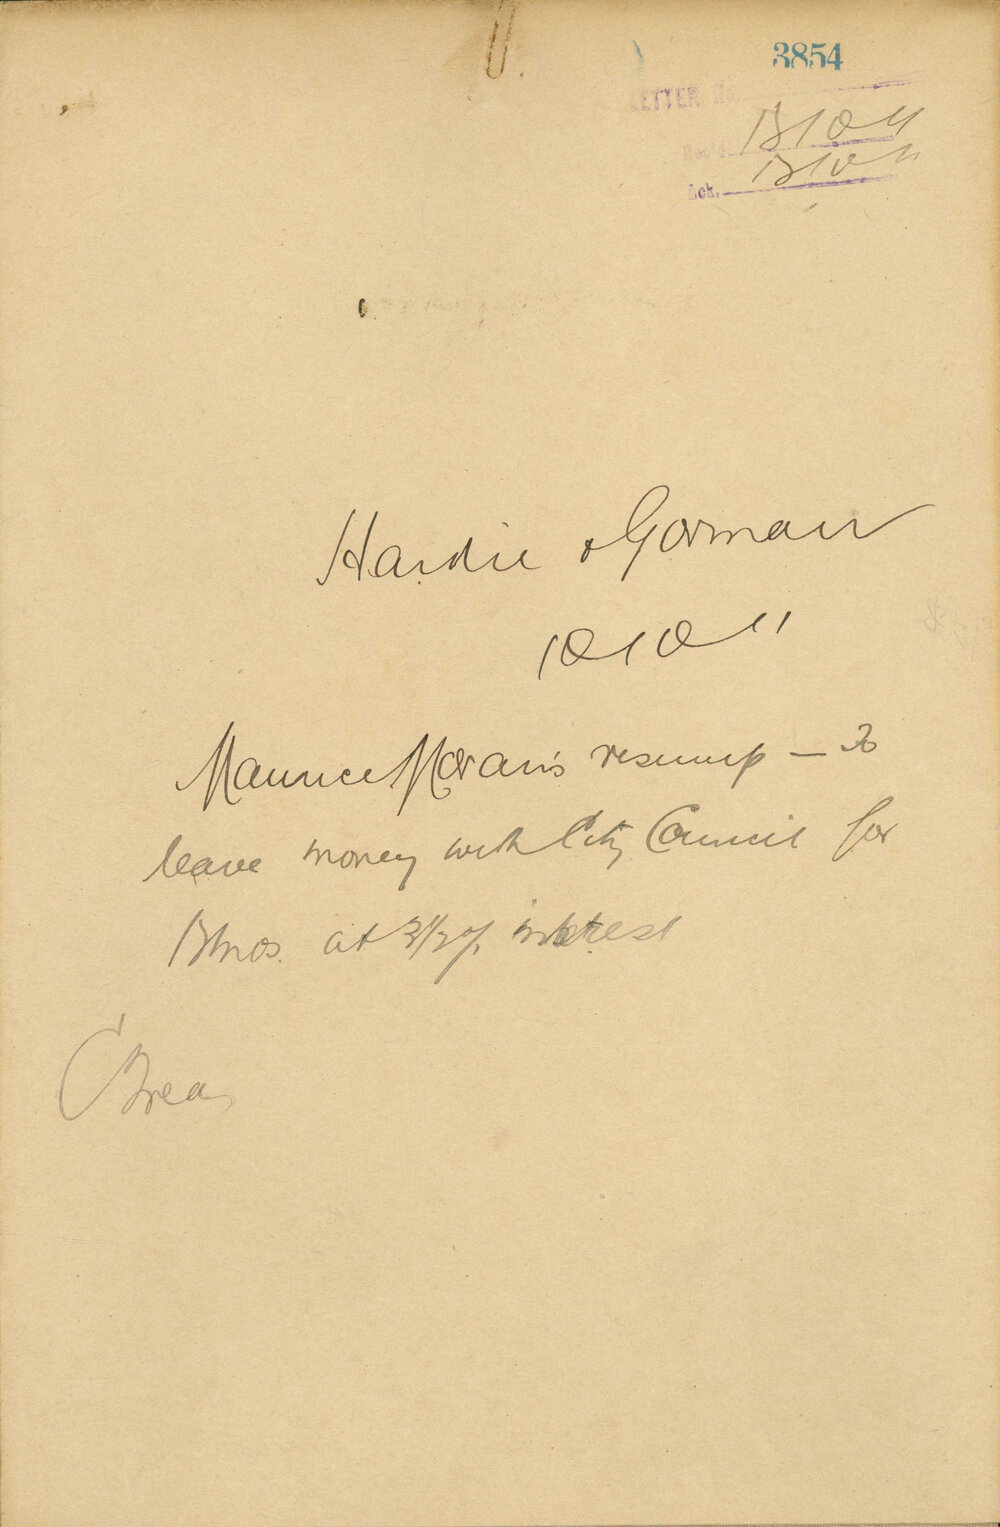 3854
LETTER No.
Rec'd. 13/10/11
Ack. 13/10/11
Hardie & Gorman
10/10/11
Maurice Moran's resump — To
leave money with City Council for
12 mos. at 3 1/2 % interest
C Treas